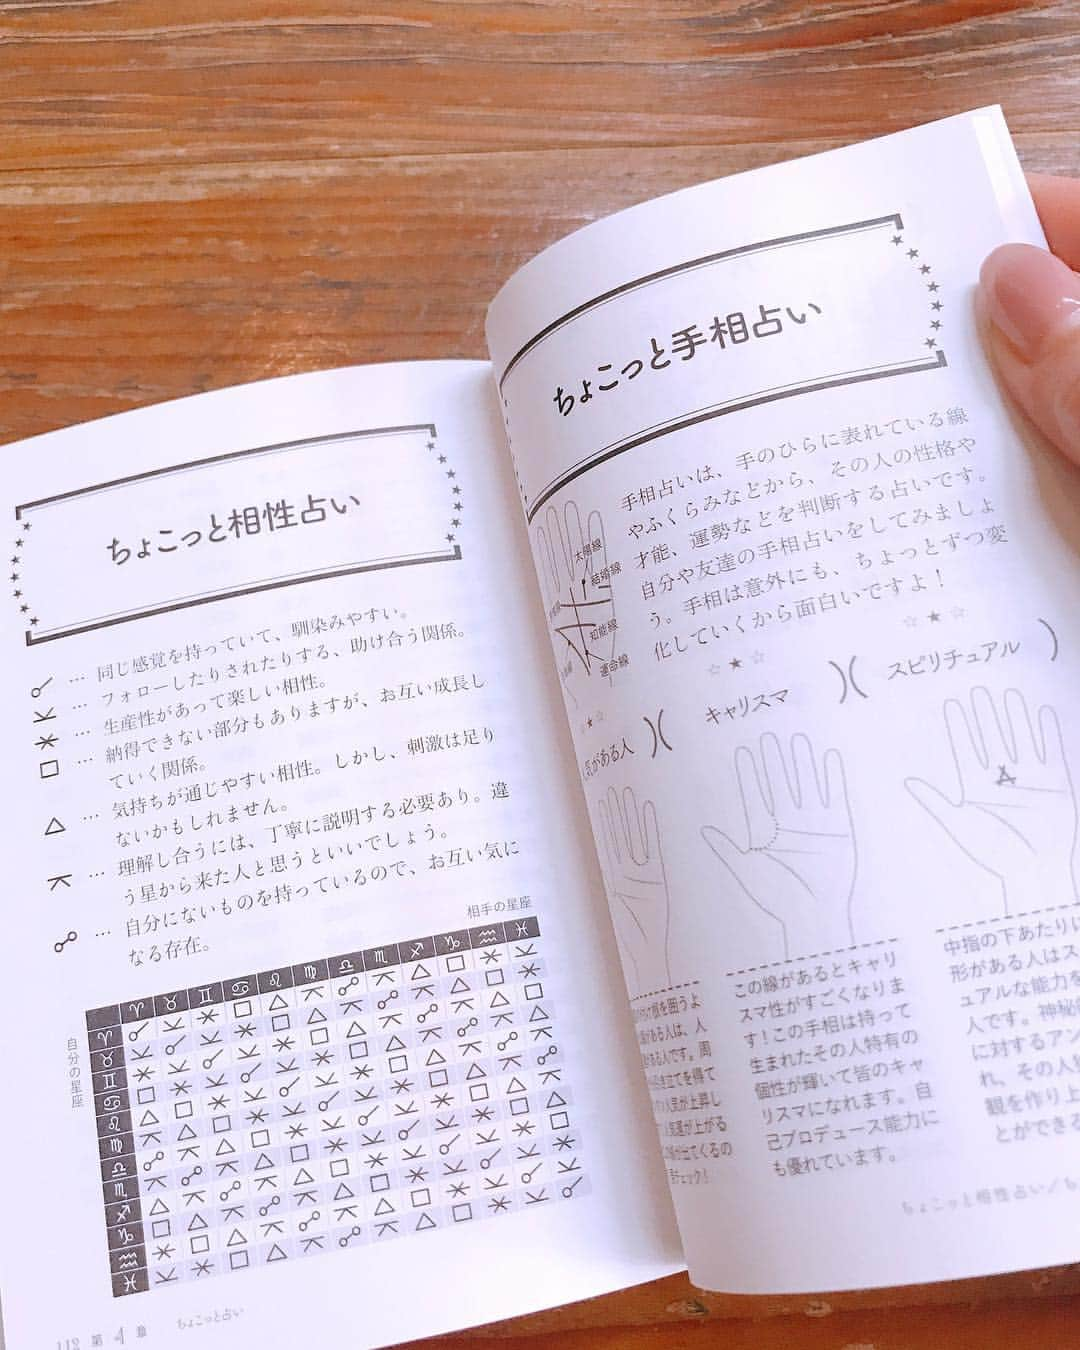 ちょこっと相性占い
☌ … 同じ感覚を持っていて、馴染みやすい。
⚺ … フォローしたりされたりする、助け合う関係。
⚹ … 生産性があって楽しい相性。
□ … 納得できない部分もありますが、お互い成長し
ていく関係。
△ … 気持ちが通じやすい相性。しかし、刺激は足り
ないかもしれません。
⚻ … 理解し合うには、丁寧に説明する必要あり。違
う星から来た人と思うといいでしょう。
☍ … 自分にないものを持っているので、お互い気に
なる存在。
相手の星座
♈ ♉ ♊ ♋ ♌ ♍ ♎ ♏ ♐ ♑ ♒ ♓
自分の星座
♈
♉
♊
♋
♌
♍
♎
♏
♐
♑
♒
♓
112 第4章 ちょこっと占い
ちょこっと手相占い
手相占いは、手のひらに表れている線
やふくらみなどから、その人の性格や
才能、運勢などを判断する占いです。
自分や友達の手相占いをしてみましょ
う。手相は意外にも、ちょっとずつ変
化していくから面白いですよ！
太陽線
結婚線
知能線
運命線
☆★☆
☆★☆
気がある人
キャリスマ
スピリチュアル
根を囲うよ
がある人は、人
がある人です。周
き立てを得て
人気が上昇し
気運が上がる
出てくるの
チェック！
この線があるとキャリ
スマ性がすごくなりま
す！この手相は持って
生まれたその人特有の
個性が輝いて皆のキャ
リスマになれます。自
己プロデュース能力に
も優れています。
中指の下あたりに
形がある人はス
ュアルな能力を
人です。神秘
に対するアン
れ、その人
観を作り上
とができる
ちょこっと相性占い／